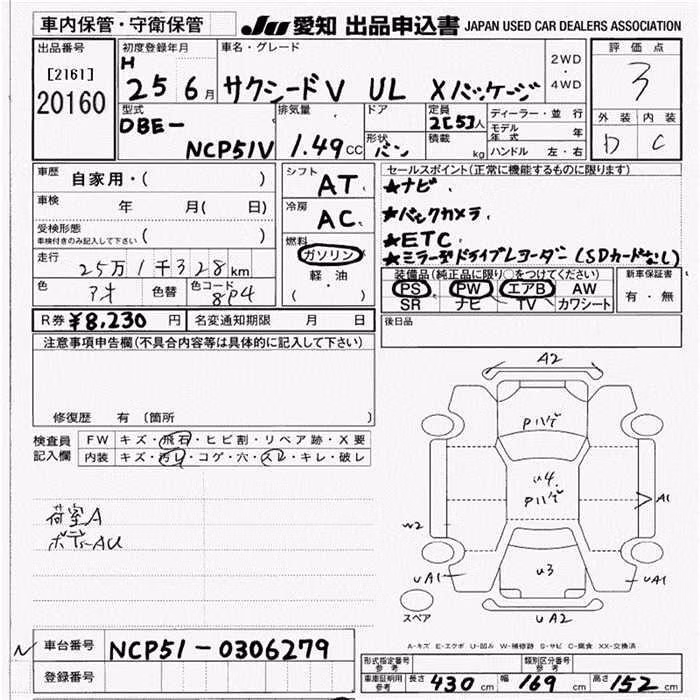 車内保管・守衛保管
JU 愛知 出品申込書 JAPAN USED CAR DEALERS ASSOCIATION
出品番号
[2161]
20160
初度登録年月
H
25 6月
車名・グレード
サクシードV UL Xパッケージ
2WD
・
4WD
評価点
3
外装 内装
D C
型式
DBE-
NCP51V
排気量
1.49CC
ドア
形状
バン
定員
2[5]人
積載
kg
ディーラー・並行
モデル年式 年
ハンドル 左・右
車歴 自家用・( )
車検 年 月( 日)
受検形態
車検付きのみ記入して下さい ( )
走行 25万1千328km
色 色替 色コード 8P4
シフト
AT
冷房
AC
燃料
ガソリン
軽・油
( )
セールスポイント(正常に機能するものに限ります)
★ナビ.
★バックカメラ.
★ETC
★ミラー型ドライブレコーダー(SDカードなし)
装備品(純正品に限り○をつけてください)
PS PW エアB AW
SR ナビ TV カワシート
新車保証書
有・無
R券 ¥8,230 円 名変通知期限 月 日
後日品
注意事項申告欄(不具合内容等は具体的に記入して下さい)
修復歴 有 〔箇所
検査員記入欄
FW キズ・飛石・ヒビ割・リペア跡・X要
内装 キズ・汚レ・コゲ・穴・スレ・キレ・破レ
荷室A
ボデーAU
A2
Pハゲ
U4
Pハゲ
A1
W2
U3
UA1
UA1
スペア
UA2
A-キズ E-エクボ U-凹み W-補修跡 S-サビ C-腐食 XX-交換済
N 車台番号 NCP51-0306279
登録番号
形式指定番号 参考
類別区分番号 参考
車庫証明 参考 長さ 430 cm 幅 169 cm 高さ 152 cm